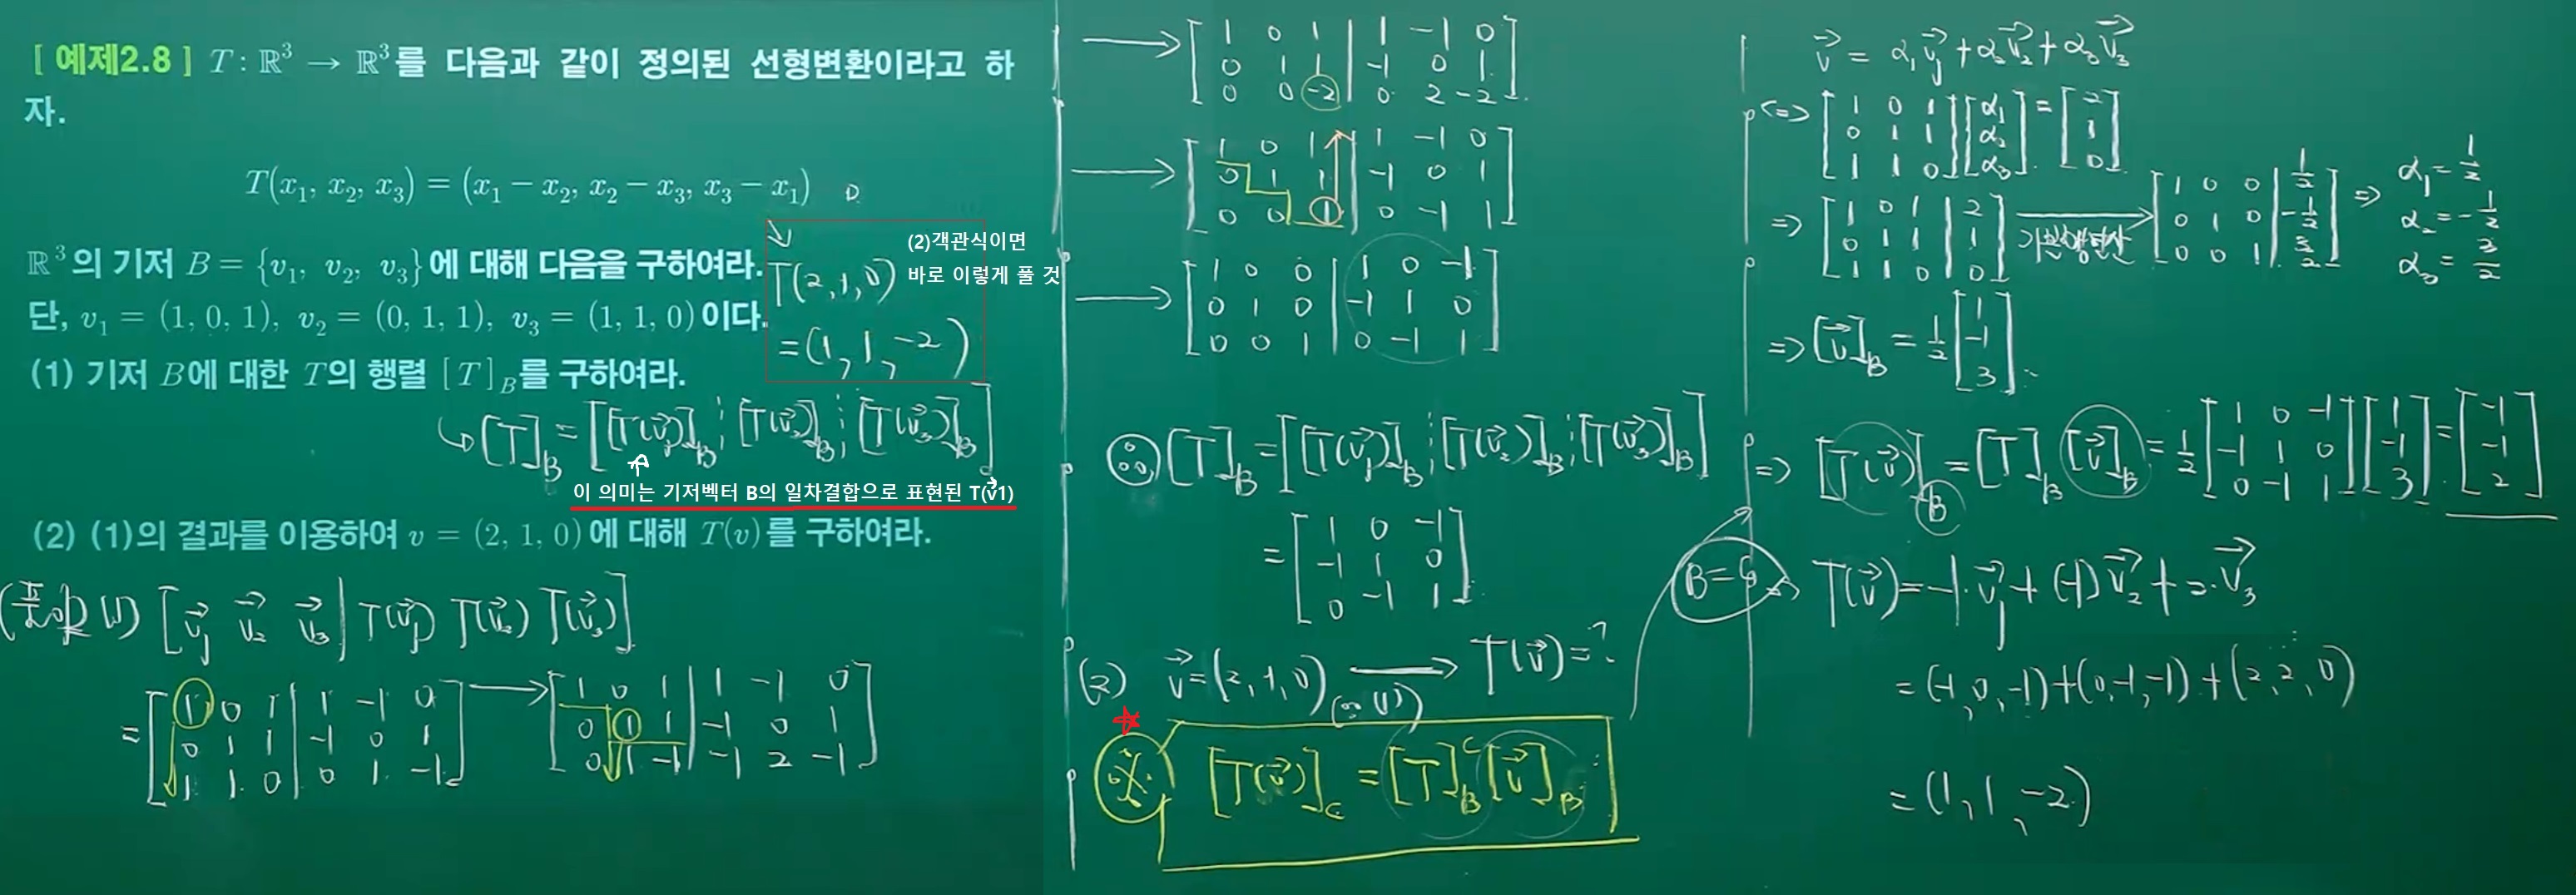 [ 예제2.8 ] T : ℝ³ → ℝ³를 다음과 같이 정의된 선형변환이라고 하
자.
T(x₁, x₂, x₃) = (x₁ − x₂, x₂ − x₃, x₃ − x₁)
ℝ³의 기저 B = {v₁, v₂, v₃}에 대해 다음을 구하여라.
단, v₁ = (1, 0, 1), v₂ = (0, 1, 1), v₃ = (1, 1, 0)이다.
(2)객관식이면
바로 이렇게 풀 것
T(2,1,0)
=(1,1,-2)
(1) 기저 B에 대한 T의 행렬 [T]_B를 구하여라.
↳ [T]_B = [[T(v⃗₁)]_B ⋮ [T(v⃗₂)]_B ⋮ [T(v⃗₃)]_B]
이 의미는 기저벡터 B의 일차결합으로 표현된 T(v⃗1)
(2) (1)의 결과를 이용하여 v = (2, 1, 0)에 대해 T(v)를 구하여라.
(풀이) (1) [v⃗₁ v⃗₂ v⃗₃ | T(v⃗₁) T(v⃗₂) T(v⃗₃)]
= [1 0 1 | 1 -1 0
0 1 1 | -1 0 1
1 1 0 | 0 1 -1]
→ [1 0 1 | 1 -1 0
0 1 1 | -1 0 1
0 1 -1 | -1 2 -1]
→ [1 0 1 | 1 -1 0
0 1 1 | -1 0 1
0 0 -2 | 0 2 -2]
→ [1 0 1 | 1 -1 0
0 1 1 | -1 0 1
0 0 1 | 0 -1 1]
→ [1 0 0 | 1 0 -1
0 1 0 | -1 1 0
0 0 1 | 0 -1 1]
∴ [T]_B = [[T(v⃗₁)]_B ⋮ [T(v⃗₂)]_B ⋮ [T(v⃗₃)]_B]
= [1 0 -1
-1 1 0
0 -1 1]
(2) v⃗=(2,1,0) → T(v⃗)=?
(∵ (1))
※ [T(v⃗)]_C = [T]_B^C [v⃗]_B
B=C
v⃗ = α₁v⃗₁+α₂v⃗₂+α₃v⃗₃
<=> [1 0 1
0 1 1
1 1 0] [α₁
α₂
α₃] = [2
1
0]
=> [1 0 1 | 2
0 1 1 | 1
1 1 0 | 0]
→ 기본행연산
[1 0 0 | 1/2
0 1 0 | -1/2
0 0 1 | 3/2]
=> α₁=1/2
α₂=-1/2
α₃=3/2
=> [v⃗]_B = 1/2 [1
-1
3]
=> [T(v⃗)]_B = [T]_B [v⃗]_B = 1/2 [1 0 -1
-1 1 0
0 -1 1] [1
-1
3] = [-1
-1
2]
=> T(v⃗)=-1·v⃗₁+(-1)v⃗₂+2·v⃗₃
=(-1,0,-1)+(0,-1,-1)+(2,2,0)
=(1,1,-2)